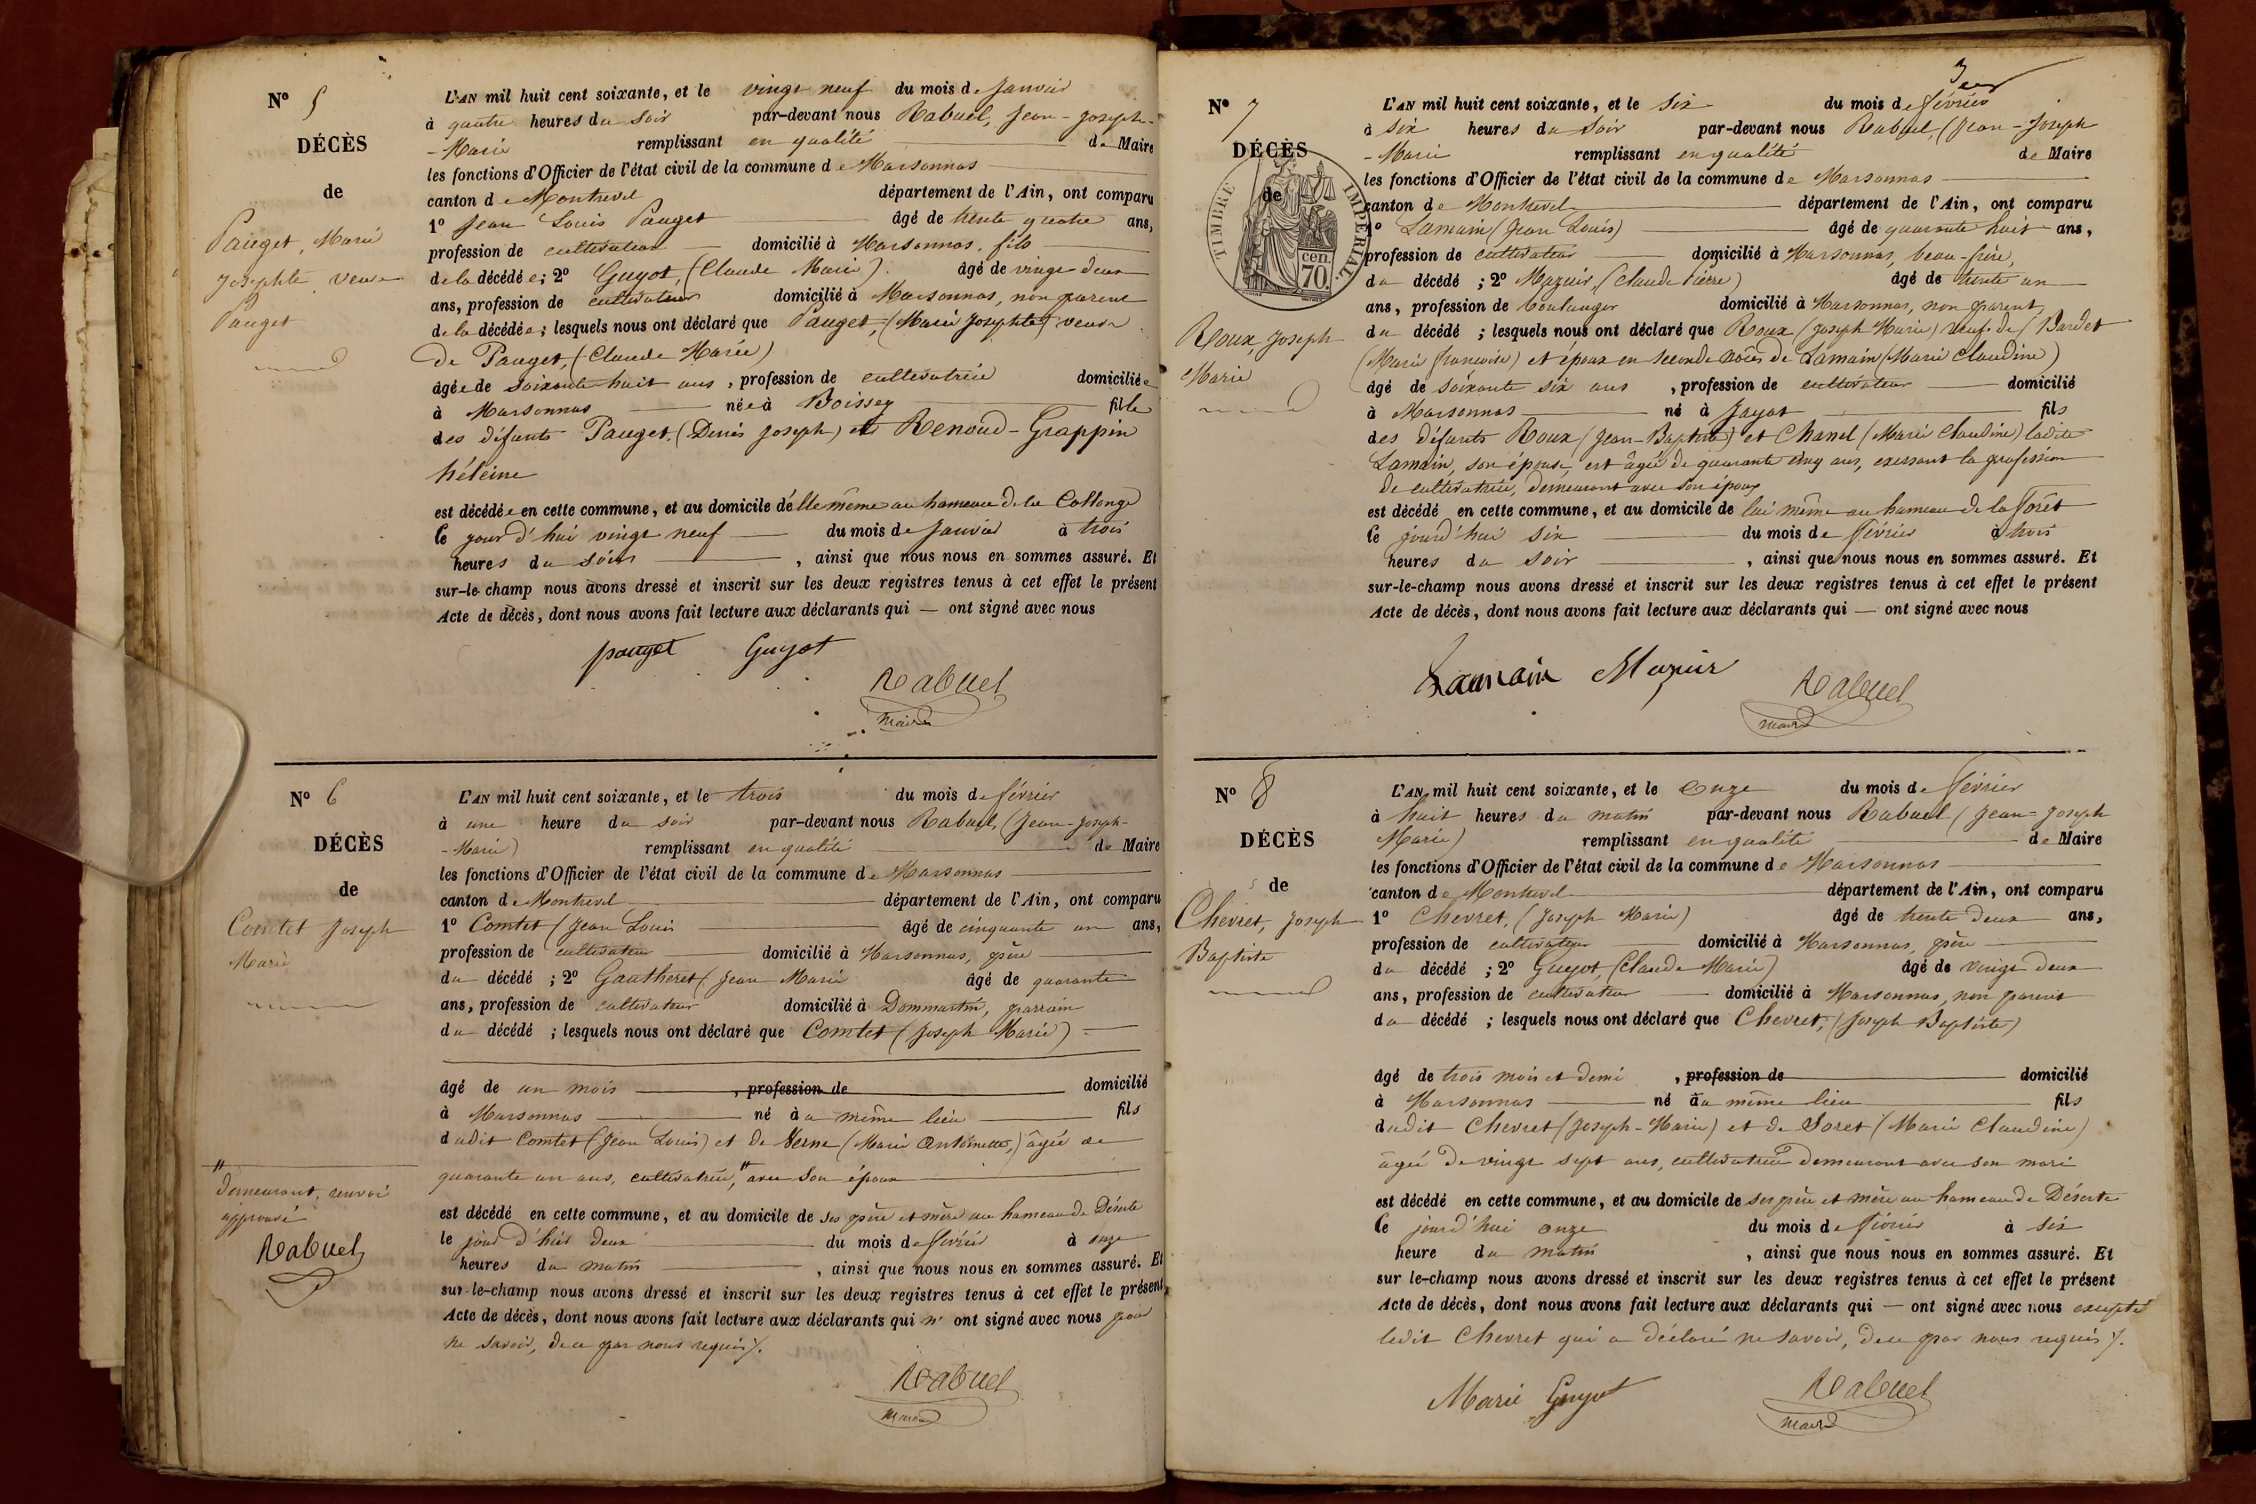 N° 5
DÉCÈS
de
Pauget, Marie
Josephte, veuve
Pauget
L'AN mil huit cent soixante, et le vingt neuf du mois de Janvier
à quatre heures du soir par-devant nous Rabuel, Jean-Joseph-
-Marie remplissant en qualité de Maire
les fonctions d'Officier de l'état civil de la commune de Marsonnas
canton de Montrevel département de l'Ain, ont comparu
1° Jean Louis Pauget âgé de trente quatre ans,
profession de cultivateur domicilié à Marsonnas, fils
de la décédée; 2° Guyot, (Claude Marie) âgé de vingt deux
ans, profession de cultivateur domicilié à Marsonnas, non parent
de la décédée; lesquels nous ont déclaré que Pauget, (Marie Josephte) veuve
de Pauget, (Claude Marie)
âgée de soixante huit ans, profession de cultivatrice domiciliée
à Marsonnas née à Boissey fille
des défunts Pauget, (Denis Joseph) et Renoud-Grappin
héleine
est décédée en cette commune, et au domicile d'elle même au hameau de la Collonge
le jour d'hui vingt neuf du mois de Janvier à trois
heures du soir, ainsi que nous nous en sommes assuré. Et
sur-le-champ nous avons dressé et inscrit sur les deux registres tenus à cet effet le présent
Acte de décès, dont nous avons fait lecture aux déclarants qui — ont signé avec nous
pauget Guyot
Rabuel
maire
N° 6
DÉCÈS
de
Comtet Joseph
Marie
L'AN mil huit cent soixante, et le trois du mois de février
à une heure du soir par-devant nous Rabuel, (Jean-Joseph-
-Marie) remplissant en qualité de Maire
les fonctions d'Officier de l'état civil de la commune de Marsonnas
canton de Montrevel département de l'Ain, ont comparu
1° Comtet (Jean Louis âgé de cinquante un ans,
profession de cultivateur domicilié à Marsonnas, père
du décédé; 2° Gautheret (Jean Marie âgé de quarante
ans, profession de cultivateur domicilié à Dommartin, parrain
du décédé; lesquels nous ont déclaré que Comtet (Joseph Marie)
âgé de un mois, profession de domicilié
à Marsonnas né au même lieu fils
dudit Comtet (Jean Louis) et de Verne (Marie Antoinette,) âgée de
quarante un ans, cultivatrice, " avec son époux
est décédé en cette commune, et au domicile de ses père et mère au hameau de Déserte
le jour d'hier deux du mois de février à onze
heures du matin, ainsi que nous nous en sommes assuré. Et
sur-le-champ nous avons dressé et inscrit sur les deux registres tenus à cet effet le présent
Acte de décès, dont nous avons fait lecture aux déclarants qui n' ont signé avec nous pour
ne savoir, de ce par nous requis ./.
" demeurant, renvoi
approuvé
Rabuel
Rabuel
maire
3
N° 7
DÉCÈS
de
TIMBRE IMPÉRIAL
70 cen.
Roux, Joseph
Marie
L'AN mil huit cent soixante, et le six du mois de février
à six heures du soir par-devant nous Rabuel, (Jean-Joseph
-Marie remplissant en qualité de Maire
les fonctions d'Officier de l'état civil de la commune de Marsonnas
canton de Montrevel département de l'Ain, ont comparu
1° Lamain (Jean Louis) âgé de quarante huit ans,
profession de cultivateur domicilié à Marsonnas, beau-frère,
du décédé; 2° Mazuir, (Claude Pierre) âgé de trente un
ans, profession de boulanger domicilié à Marsonnas, non parent,
du décédé; lesquels nous ont déclaré que Roux (Joseph Marie) veuf de (Bardet
(Marie françoise) et époux en seconde noces de Lamain (Marie Claudine)
âgé de soixante six ans, profession de cultivateur domicilié
à Marsonnas né à Jayat fils
des défunts Roux (Jean-Baptiste) et Chanel (Marie Claudine) ladite
Lamain, son épouse, est âgée de quarante cinq ans, exersant la profession
de cultivatrice, demeurant avec son époux
est décédé en cette commune, et au domicile de lui même au hameau de la Forêt
le jourd'hui six du mois de février à trois
heures du soir, ainsi que nous nous en sommes assuré. Et
sur-le-champ nous avons dressé et inscrit sur les deux registres tenus à cet effet le présent
Acte de décès, dont nous avons fait lecture aux déclarants qui — ont signé avec nous
Lamain Mazuir
Rabuel
maire
N° 8
DÉCÈS
de
Chevret, Joseph
Baptiste
L'AN mil huit cent soixante, et le onze du mois de février
à huit heures du matin par-devant nous Rabuel (Jean-Joseph
Marie) remplissant en qualité de Maire
les fonctions d'Officier de l'état civil de la commune de Marsonnas
canton de Montrevel département de l'Ain, ont comparu
1° Chevret, (Joseph Marie) âgé de trente deux ans,
profession de cultivateur domicilié à Marsonnas, père
du décédé; 2° Guyot, (Claude Marie) âgé de vingt deux
ans, profession de cultivateur domicilié à Marsonnas, non parent
du décédé; lesquels nous ont déclaré que Chevret, (Joseph Baptiste)
âgé de trois mois et demi, profession de domicilié
à Marsonnas né au même lieu fils
dudit Chevret (Joseph-Marie) et de Soret (Marie Claudine)
âgée de vingt sept ans, cultivatrice demeurant avec son mari
est décédé en cette commune, et au domicile de ses père et mère au hameau de Déserte
le jourd'hui onze du mois de février à six
heure du matin, ainsi que nous nous en sommes assuré. Et
sur le-champ nous avons dressé et inscrit sur les deux registres tenus à cet effet le présent
Acte de décès, dont nous avons fait lecture aux déclarants qui — ont signé avec nous excepté
ledit Chevret qui a déclaré ne savoir, de ce par nous requis ./.
Marie Guyot
Rabuel
maire